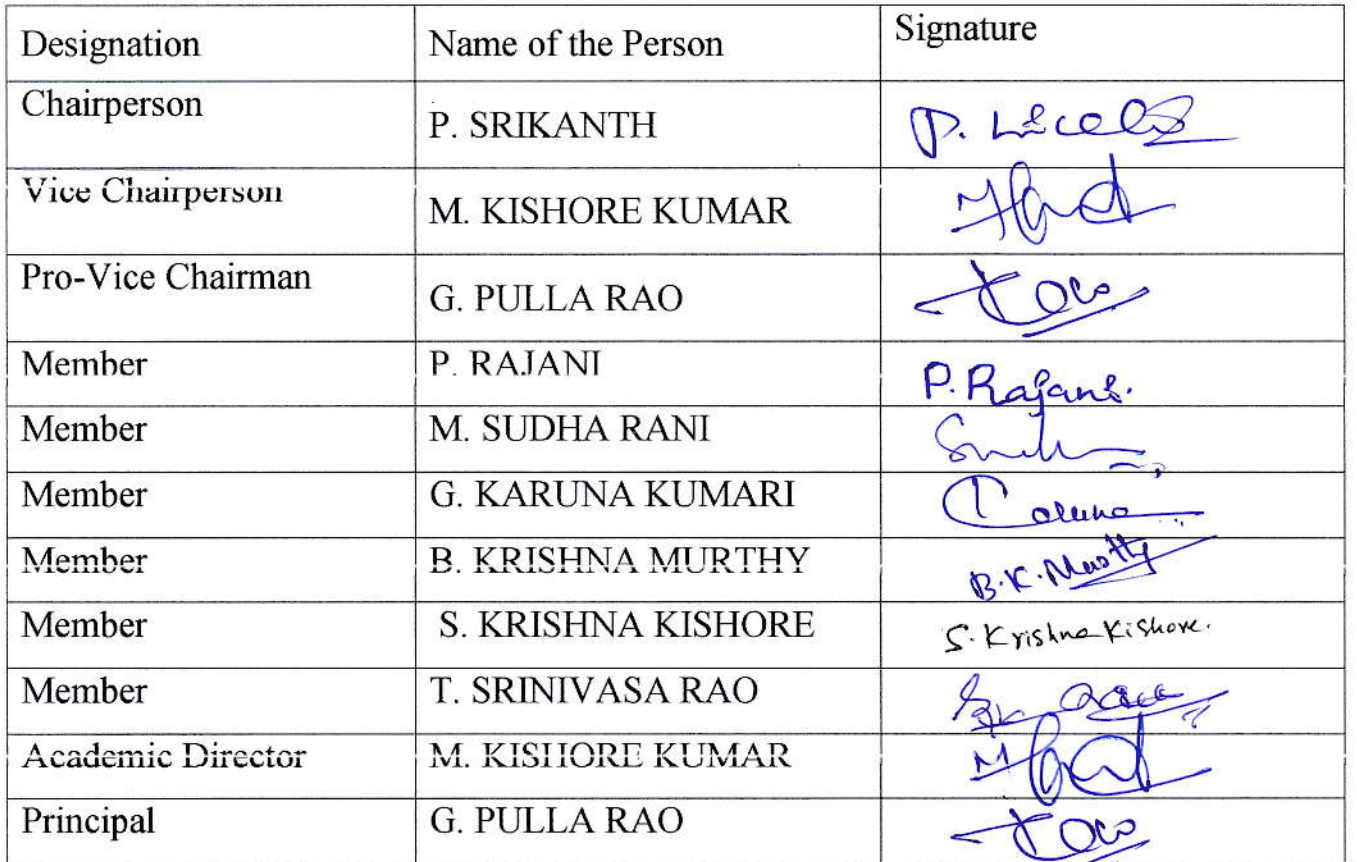 Designation Name of the Person Signature
Chairperson P. SRIKANTH
Vice Chairperson M. KISHORE KUMAR
Pro-Vice Chairman G. PULLA RAO
Member P. RAJANI P. Rajani.
Member M. SUDHA RANI
Member G. KARUNA KUMARI
Member B. KRISHNA MURTHY B.K. Murthy
Member S. KRISHNA KISHORE S. Krishna Kishore.
Member T. SRINIVASA RAO
Academic Director M. KISHORE KUMAR
Principal G. PULLA RAO